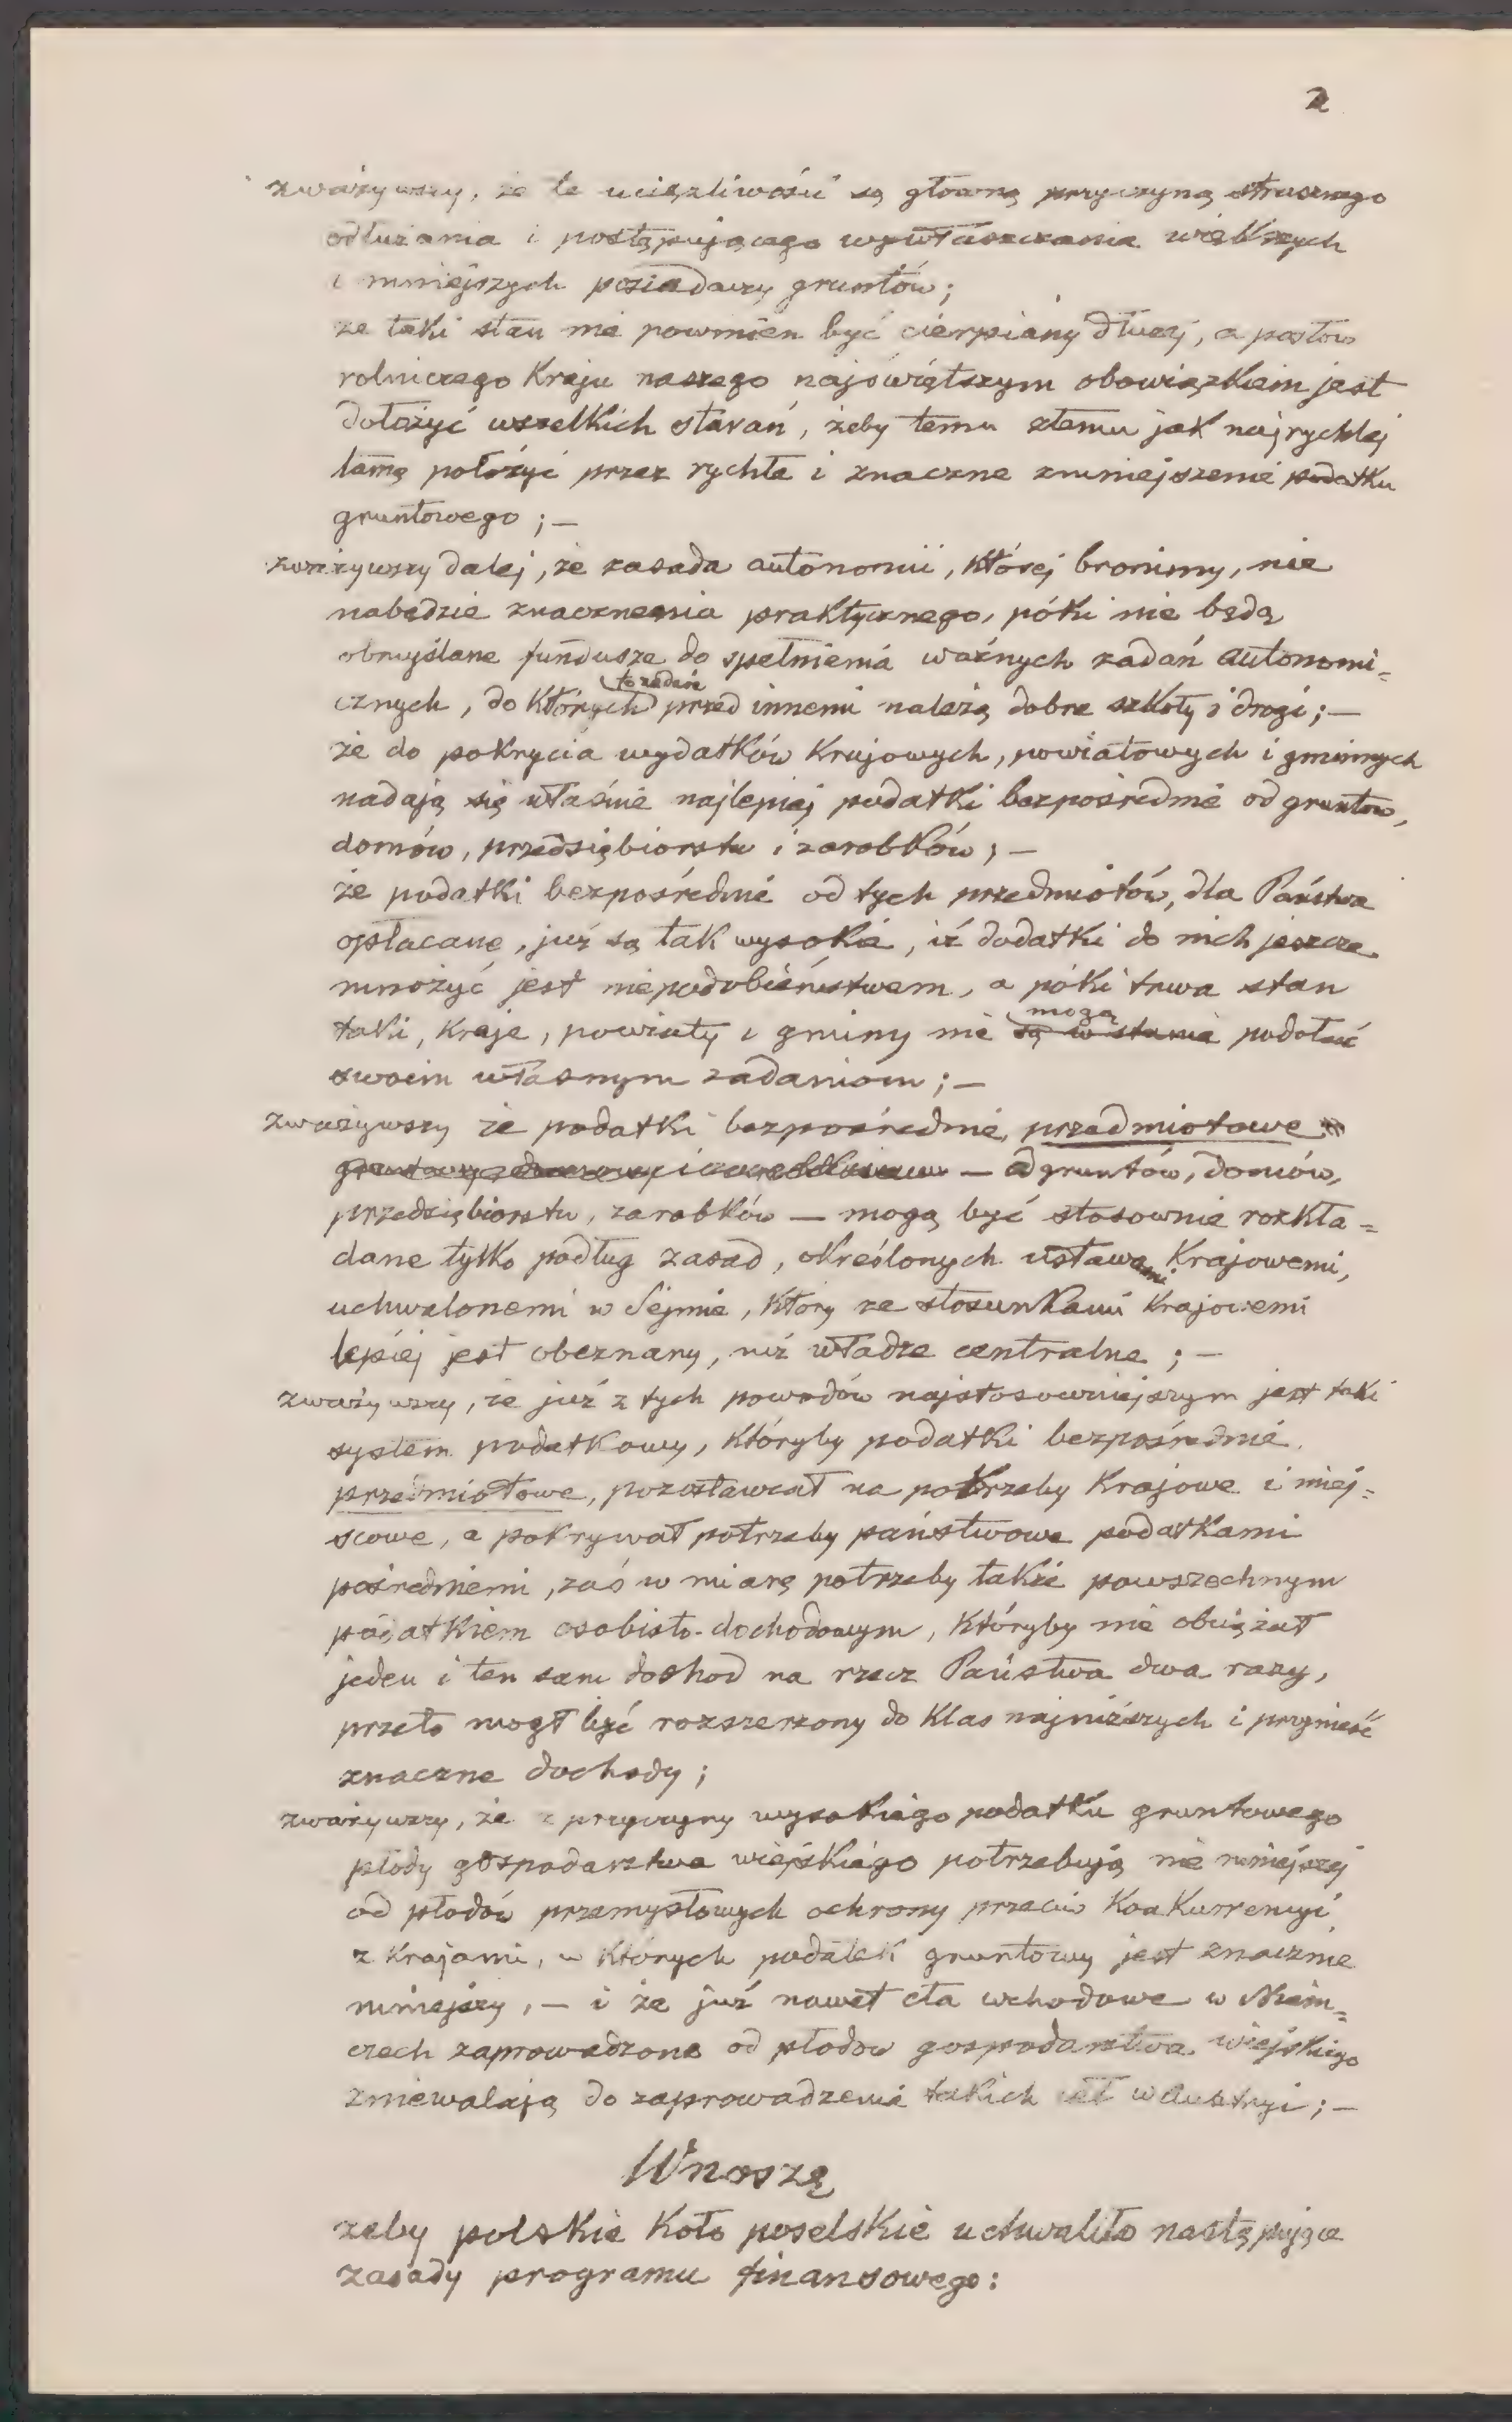 2
zważywszy, że te uciążliwości są główną przyczyną strasznego
odłużania i postępującego wywłaszczania większych
i mniejszych posiadaczy gruntów;
że taki stan nie powinien być cierpiany dłużej, a posłów
rolniczego Kraju naszego najświętszym obowiązkiem jest
dołożyć wszelkich starań, żeby temu złemu jak najrychlej
tamę położyć przez rychłe i znaczne zmniejszenie podatku
gruntowego; —
zważywszy dalej, że zasada autonomii, której bronimy, nie
nabędzie znaczenia praktycznego, póki nie będą
obmyślane fundusze do spełnienia ważnych zadań autonomi=
cznych, do Których przed innemi należą dobre szkoły i drogi; —
że do pokrycia wydatków Krajowych, powiatowych i gminnych
nadają się właśnie najlepiej podatki bezpośrednie od gruntów,
domów, przedsiębiorstw i zarobków; —
że podatki bezpośrednie od tych przedmiotów, dla Państwa
opłacane, już są tak wysokie, iż dodatki do nich jeszcze
mnożyć jest niepodobieństwem, a póki trwa stan
mogą
taki, Kraje, powiaty i gminy nie są w stanie podołać
swoim własnym zadaniom; —
zważywszy że podatki bezpośrednie, przedmiotowe
— od gruntów, domów,
przedsiębiorstw, zarobków — mogą być stosownie rozkła=
dane tylko podług zasad, określonych ustawami Krajowemi,
uchwalonemi w Sejmie, Który ze stosunkami Krajowemi
lepiej jest obeznany, niż władze centralne; —
zważywszy, że już z tych powodów najstosowniejszym jest taki
system podatkowy, Któryby podatki bezpośrednie,
przedmiotowe, pozostawiał na potrzeby Krajowe i miej=
scowe, a pokrywał potrzeby państwowe podatkami
pośredniemi, zaś w miarę potrzeby także powszechnym
podatkiem osobisto-dochodowym, Któryby nie obciążał
jeden i ten sam dochod na rzecz Państwa dwa razy,
przeto mogł być rozszerzony do Klas najniższych i przynieść
znaczne dochody;
zważywszy, że z przyczyny wysokiego podatku gruntowego
płody gospodarstwa wiejskiego potrzebują nie mniejszej
od płodów przemysłowych ochrony przeciw KonKurrencyi
z Krajami, w Których podatek gruntowy jest znacznie
mniejszy, — i że już nawet cła wchodowe w Niem=
czech zaprowadzone od płodów gospodarstwa wiejskiego
zniewalają do zaprowadzenia takich ceł w Austryi; —
Wnoszę
żeby polskie Koło poselskie uchwaliło następujące
zasady programu finansowego: